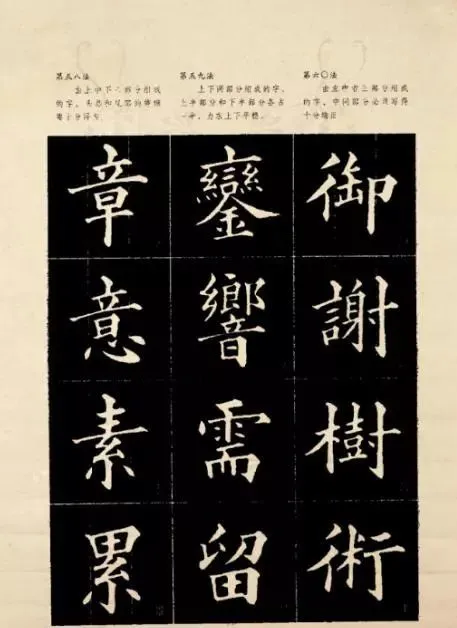 第五八法
由上中下三部分组成
的字，头部和尾部的

第五九法
上下两部分组成的字，
上半部分和下半部分各占
一半，力求上下平稳。

第六〇法
由左中右三部分组成
的字，中间部分必须写得
十分端正

章
意
素
累

鑾
響
需
留

御
謝
樹
術